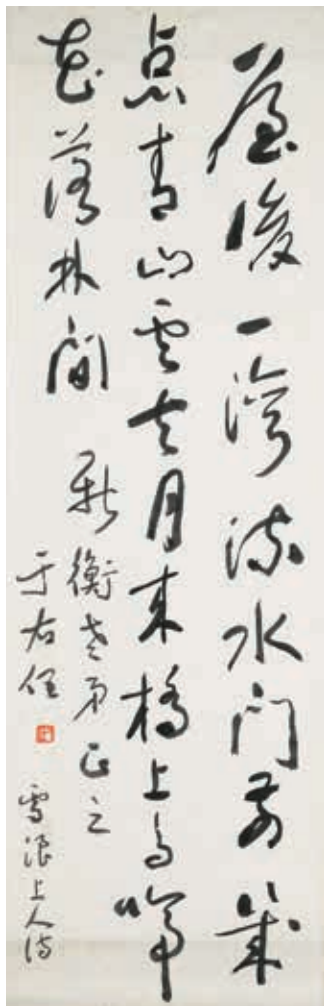 屋後一灣流水门前幾
点青山雲去月来橋上鳥啼
花落林間
新衡老弟正之
于右任
雪浪上人诗